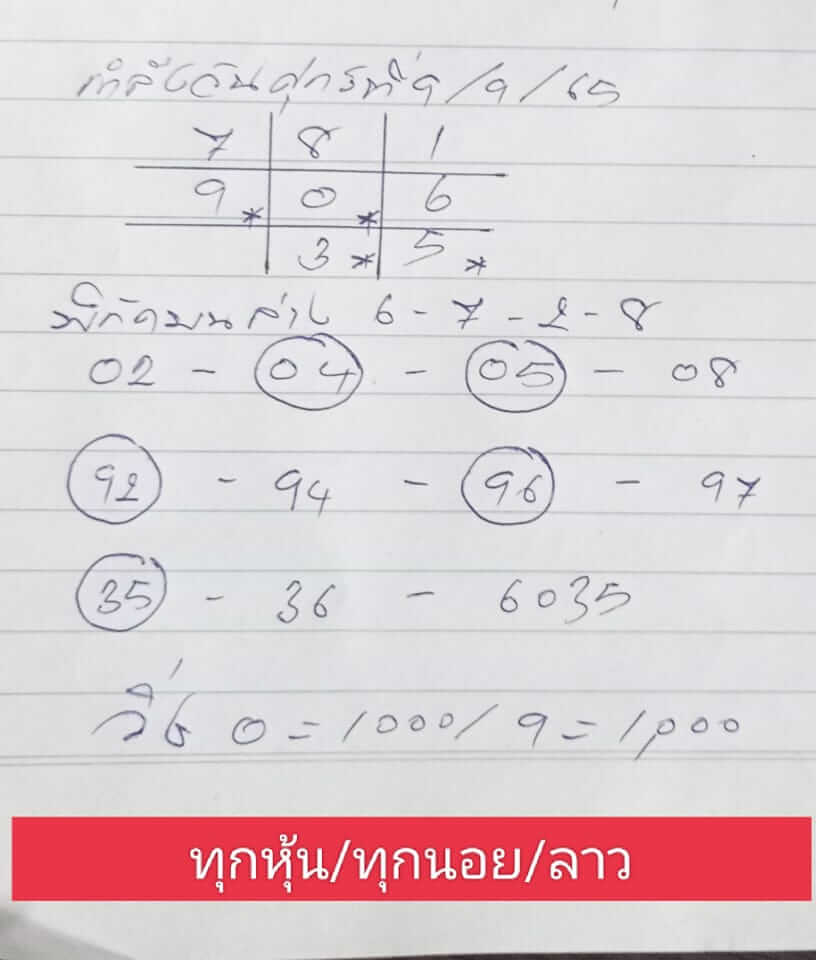 กำลังวันศุกร์ที่ 9/9/65
7 8 1
9* 0* 6
3* 5*
พิกัดบนล่าง 6-7-2-8
02 - 04 - 05 - 08
92 - 94 - 96 - 97
35 - 36 - 6035
วิ่ง 0=1000/9=1,000
ทุกหุ้น/ทุกนอย/ลาว